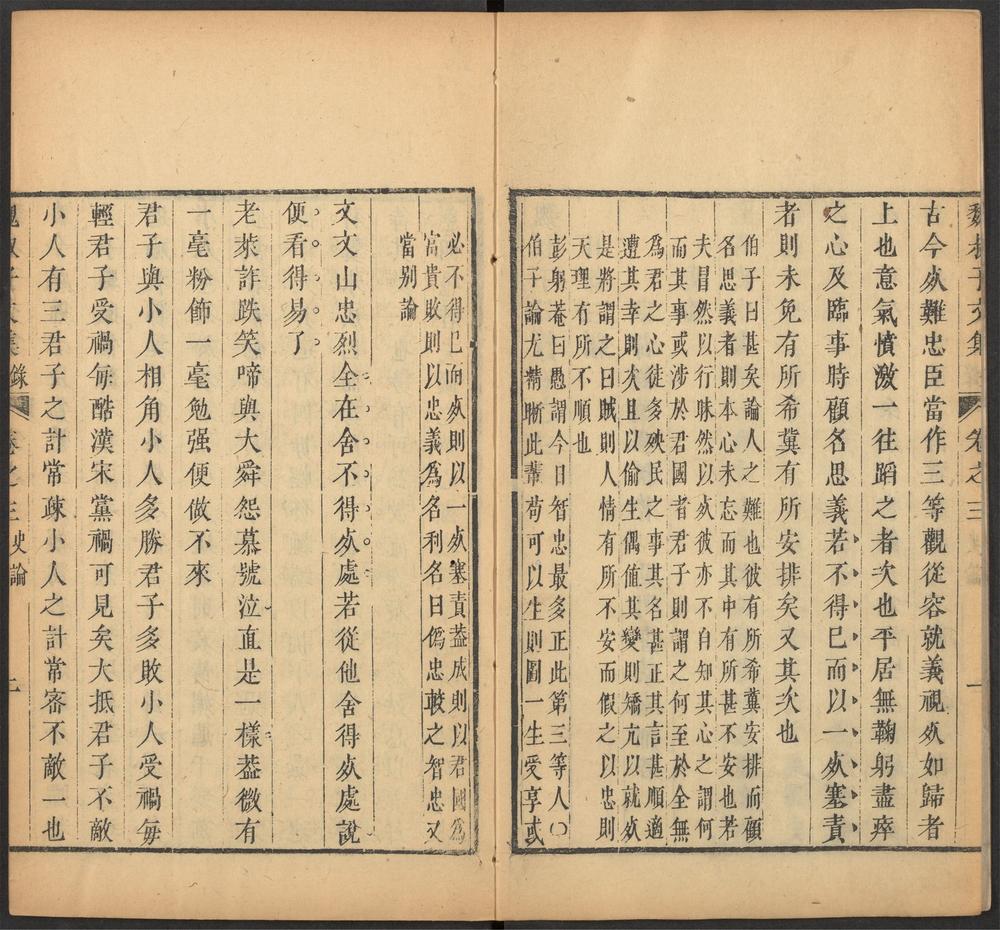 魏叔子文集 卷之三 史論 一
古今死難忠臣當作三等觀從容就義視死如歸者
上也意氣憤激一往蹈之者次也平居無鞠躬盡瘁
之心及臨事時顧名思義若不得已而以一死塞責
者則未免有所希冀有所安排矣又其次也
伯子曰甚矣論人之難也彼有所希冀安排而顧
名思義者則本心未忘而其中有所甚不安也若
夫冒然以行昧然以死彼亦不自知其心之謂何
而其事或涉於君國者君子則謂之何至於全無
為君之心徒多殃民之事其名甚正其言甚順適
遭其幸則久且以偷生偶值其變則矯亢以就死
是將謂之曰賊則人情有所不安而假之以忠則
天理有所不順也
彭躬菴曰愚謂今日智忠最多正此第三等人○
伯子論尤精晰此輩苟可以生則圖一生受享或
必不得已而死則以一死塞責葢成則以君國為
富貴敗則以忠義為名利名曰僞忠較之智忠又
當别論
文文山忠烈全在舍不得死處若從他舍得死處說
便看得易了
老萊詐跌笑啼與大舜怨慕號泣直是一樣葢微有
一毫粉飾一毫勉强便做不來
君子與小人相角小人多勝君子多敗小人受禍每
輕君子受禍每酷漢宋黨禍可見矣大抵君子不敵
小人有三君子之計常疎小人之計常審不敵一也
魏叔子文集 錄 卷之三 史論 二